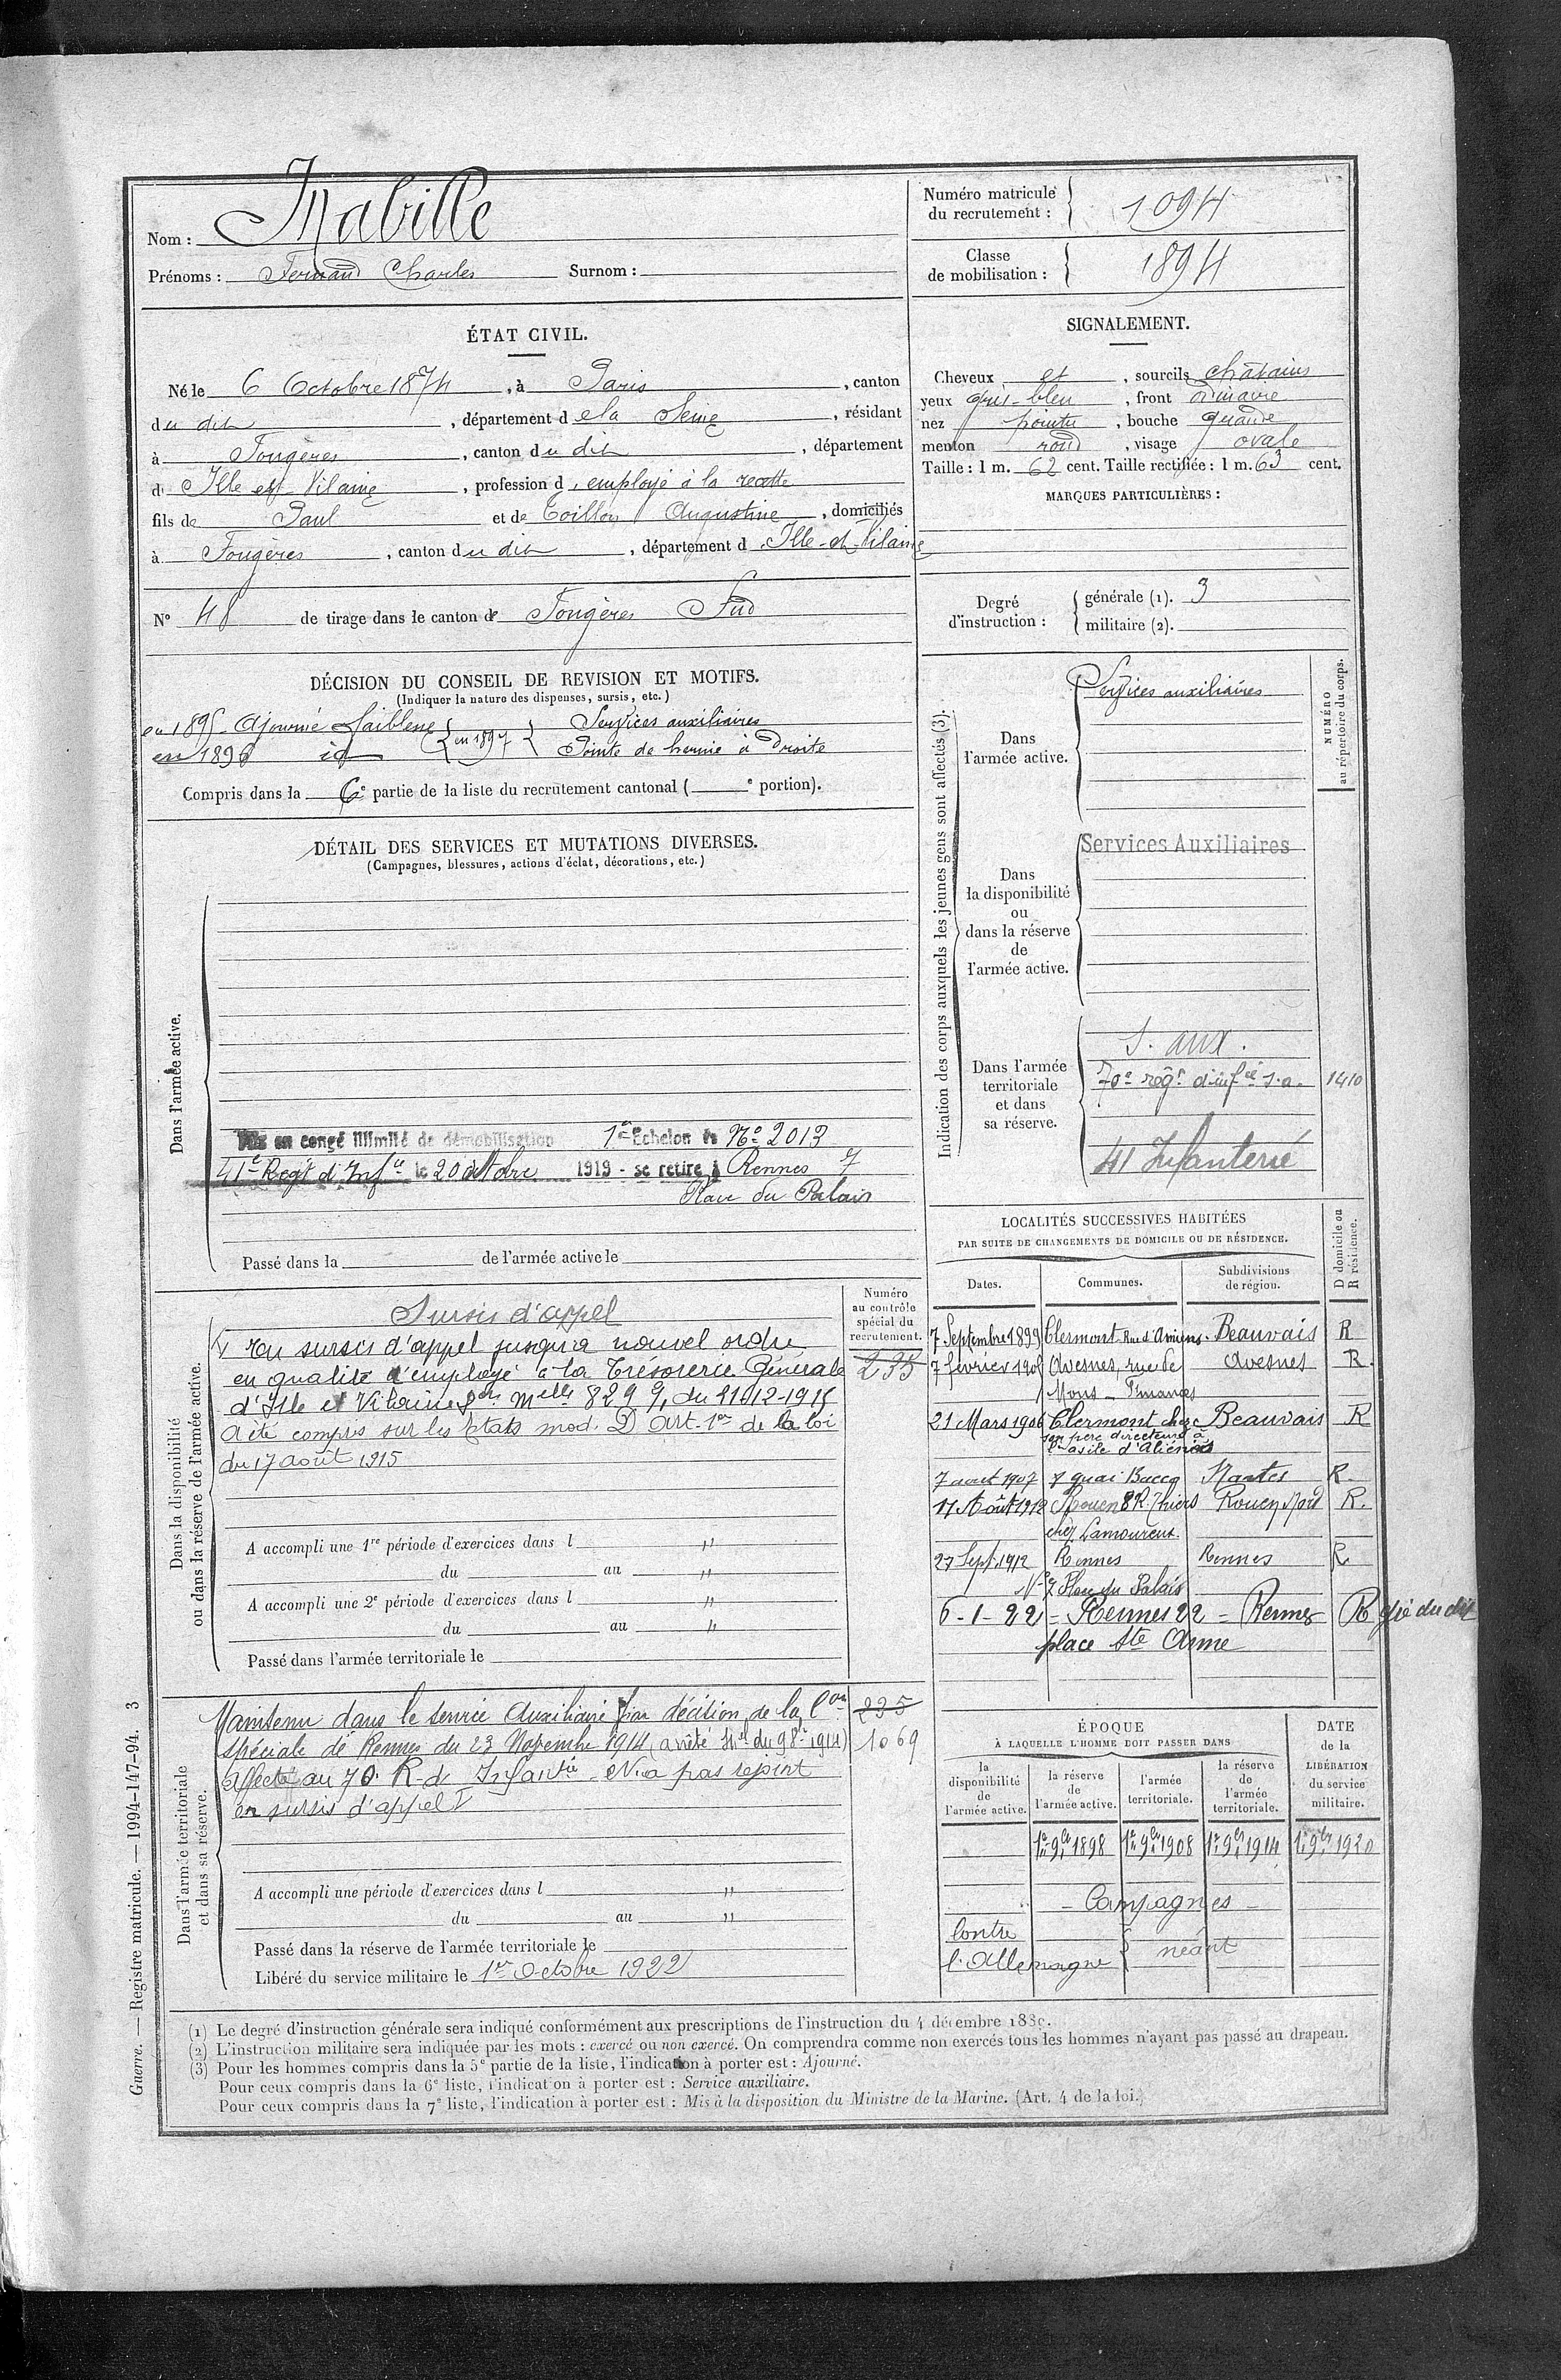 Nom : Mabille
Prénoms : Fernand Charles Surnom :
Numéro matricule du recrutement : 1094
Classe de mobilisation : 1894
ÉTAT CIVIL.
Né le 6 Octobre 1874, à Paris, canton
du dit, département de la Seine, résidant
à Fougères, canton du dit, département
d' Ille et Vilaine, profession d' employé à la recette
fils de Paul et de Augustine, domiciliés
à Fougères, canton du dit, département d Ille-et-Vilaine
N° 48 de tirage dans le canton de Fougères Sud
SIGNALEMENT.
Cheveux et, sourcils châtains
yeux gris-bleu, front ordinaire
nez pointu, bouche grande
menton rond, visage ovale
Taille : 1 m. 62 cent. Taille rectifiée : 1 m. 63 cent.
MARQUES PARTICULIÈRES :
Degré d'instruction : générale (1). 3
militaire (2).
DÉCISION DU CONSEIL DE REVISION ET MOTIFS.
(Indiquer la nature des dispenses, sursis, etc.)
en 1895 Ajourné faiblesse } en 1897 { Services auxiliaires
en 1896 id Pointe de hernie à droite
Compris dans la 6e partie de la liste du recrutement cantonal ( e portion).
DÉTAIL DES SERVICES ET MUTATIONS DIVERSES.
(Campagnes, blessures, actions d'éclat, décorations, etc.)
Dans l'armée active.
Mis en congé illimité de démobilisation 1er Echelon No 2013
41e Régt d'Infie le 20 octobre 1919 - se retire à Rennes 7
Place du Palais
Passé dans la de l'armée active le
Indication des corps auxquels les jeunes gens sont affectés (3).
NUMÉRO au répertoire du corps.
Dans l'armée active.
Services auxiliaires
Dans la disponibilité ou dans la réserve de l'armée active.
Services Auxiliaires
Dans l'armée territoriale et dans sa réserve.
S. aux.
70e régt d'infie s.a. 1410
41 Infanterie
Dans la disponibilité ou dans la réserve de l'armée active.
Numéro au contrôle spécial du recrutement.
235
Sursis d'appel
En sursis d'appel jusqu'à nouvel ordre
en qualité d'employé à la Trésorerie Générale
d'Ille et Vilaine 829 9, du 21-12-1915
A été compris sur les états mod. D art. 1er de la loi
du 17 août 1915
A accompli une 1re période d'exercices dans l "
du au "
A accompli une 2e période d'exercices dans l "
du au "
Passé dans l'armée territoriale le
LOCALITÉS SUCCESSIVES HABITÉES
PAR SUITE DE CHANGEMENTS DE DOMICILE OU DE RÉSIDENCE.
Dates. Communes. Subdivisions de région. D domicile ou R résidence.
7 Septembre 1899 Clermont Rue d'Amiens. Beauvais R
7 février 1905 Avesnes, rue de Avesnes R.
Mons - Finances
21 Mars 1906 Clermont chez Beauvais R
son père directeur à
l'asile d'Aliénés
7 aout 1907 quai Baccq Nantes R.
17 Août 1912 Rouen 8 R. Thiers Rouen Nord R.
chez Lamoureux.
27 Sept. 1912 Rennes Rennes R
No 7 Place du Palais
6-1-22 = Rennes 22 = Rennes R
place Ste Anne
Dans l'armée territoriale et dans sa réserve.
Maintenu dans le service Auxiliaire par décision de la Con 235
spéciale de Rennes du 23 Novembre 1914 1069
Affecté au 70e R d Infantie N'a pas rejoint
en sursis d'appel
A accompli une période d'exercices dans l "
du au "
Passé dans la réserve de l'armée territoriale le
Libéré du service militaire le 1er Octobre 1922
ÉPOQUE
À LAQUELLE L'HOMME DOIT PASSER DANS
la disponibilité de l'armée active. la réserve de l'armée active. l'armée territoriale. la réserve de l'armée territoriale. DATE de la LIBÉRATION du service militaire.
1er 9bre 1898 1er 9bre 1908 1er 9bre 1914 1er 9bre 1920
- Campagnes -
Contre
l'Allemagne } néant
(1) Le degré d'instruction générale sera indiqué conformément aux prescriptions de l'instruction du 4 décembre 1889.
(2) L'instruction militaire sera indiquée par les mots : exercé ou non exercé. On comprendra comme non exercés tous les hommes n'ayant pas passé au drapeau.
(3) Pour les hommes compris dans la 5e partie de la liste, l'indication à porter est : Ajourné.
Pour ceux compris dans la 6e liste, l'indication à porter est : Service auxiliaire.
Pour ceux compris dans la 7e liste, l'indication à porter est : Mis à la disposition du Ministre de la Marine. (Art. 4 de la loi.)
Guerre. — Registre matricule. — 1994-147-94. 3